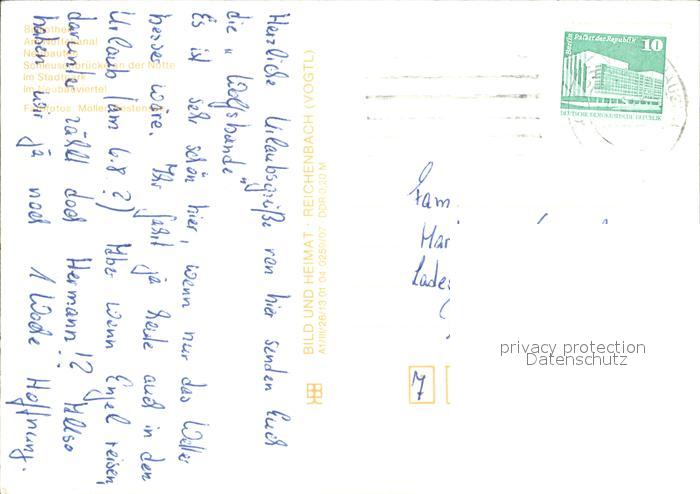 Herzliche Urlaubsgrüße von hier senden Euch
die „Wolfsbande"
Es ist sehr schön hier, wenn nur das Wetter
besser wäre. Ihr fahrt ja heute auch in den
Urlaub (am 6.8?) Aber wenn Engel reisen,
darunter zählt doch Hermann!? Also
haben wir ja noch 1 Woche Hoffnung.
Neubauten
im Stadtpark
im Neubauviertel
BILD UND HEIMAT · REICHENBACH (VOGTL)
A1/III/26/13 01 04 0250/07 DDR 0,20 M
Berlin Palast der Republik
10
DEUTSCHE DEMOKRATISCHE REPUBLIK
Fam.
Mar
7
privacy protection
Datenschutz